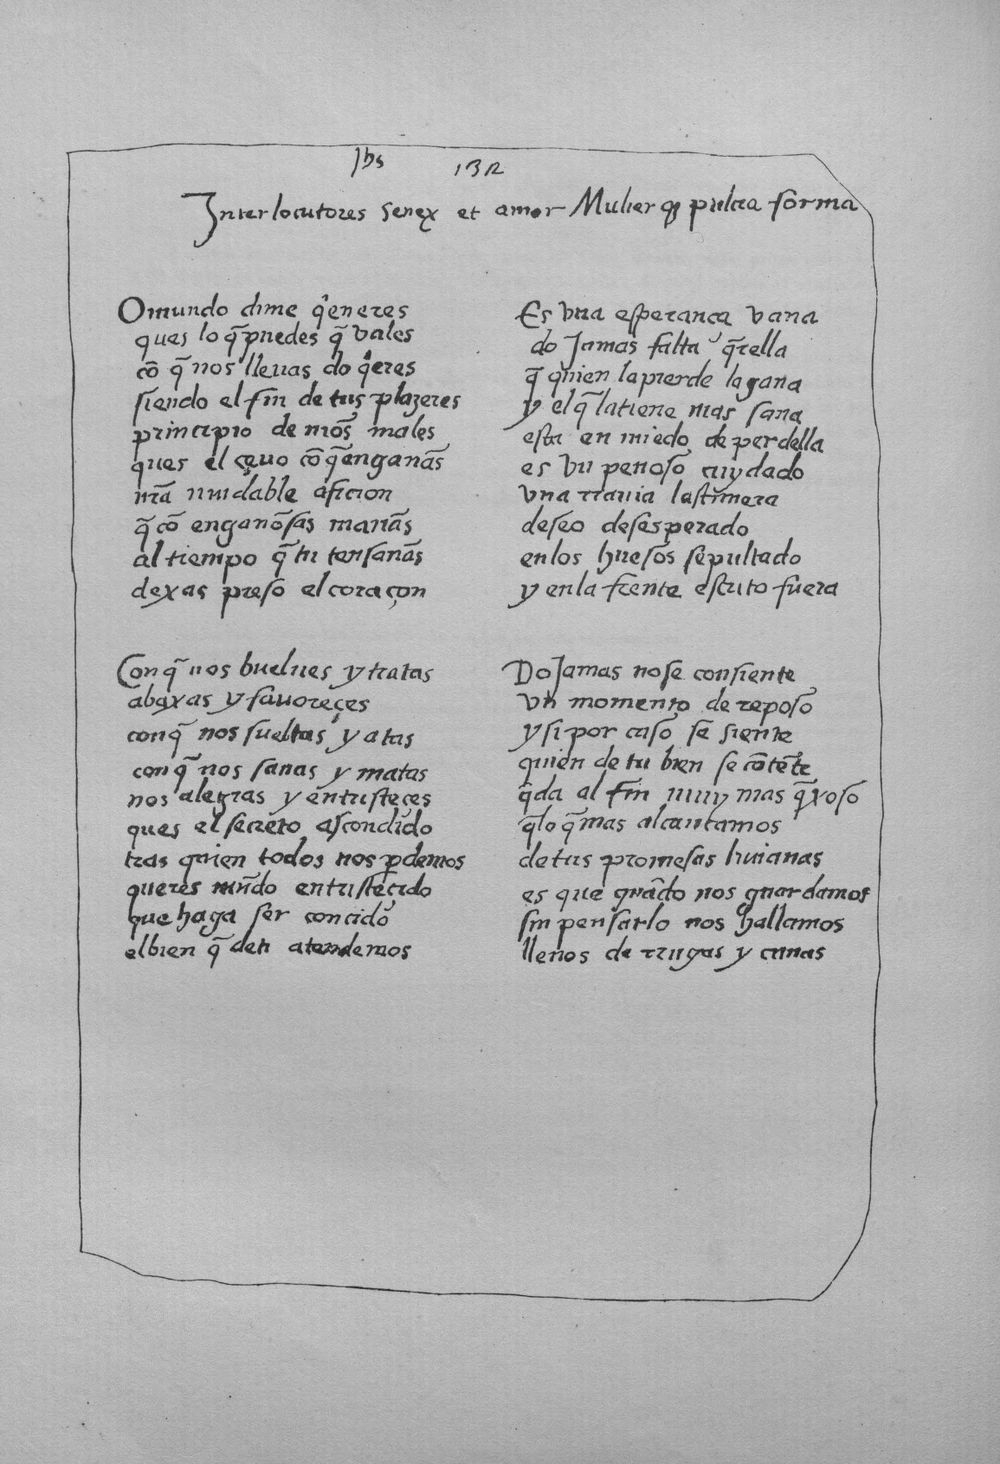 Jhs 132
Interlocutores senex et amor Mulier q̃ pulcra forma
O mundo dime q̃en eres
ques lo q̃ puedes q̃ vales
cō q̃ nos lleuas do q̃eres
siendo el fin de tus plazeres
principio de ñros males
ques el çeuo cō q̃ enganãs
nrã mudable aficion
q̃ cō enganõsas manãs
al tiempo q̃ tu tensanãs
dexas preso el coraçon
Con q̃ nos buelues y tratas
abaxas y fauoreçes
con q̃ nos sueltas y atas
con q̃ nos sanas y matas
nos alegras y entristeçes
ques el secreto ascondido
tras quien todos nos pdemos
queres mũdo entristecido
que haga ser conçido
el bien q̃ den atendemos
Es vna esperança vana
do Jamas falta q̃rella
q̃ quien la pierde la gana
y el q̃ la tiene mas sana
esta en miedo de perdella
es vn penoso cuydado
vna rrauia lastimera
deseo desesperado
en los huesos sepultado
y en la frente escrito fuera
Do Jamas no se consiente
vn momento de reposo
y si por caso se siente
quien de tu bien se cōtẽte
q̃da al fin muy mas q̃xoso
q̃ lo q̃ mas alcantamos
de tus promesas liuianas
es que quãdo nos guardamos
sin pensarlo nos hallamos
llenos de rrugas y canas